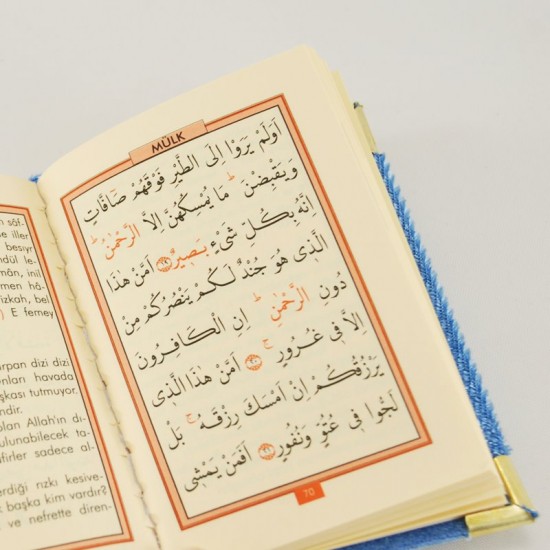 MÜLK
اَوَلَمْ يَرَوْا اِلَى الطَّيْرِ فَوْقَهُمْ صَٓافَّاتٍ
وَيَقْبِضْنَۜ مَا يُمْسِكُهُنَّ اِلَّا الرَّحْمٰنُۜ
اِنَّهُ بِكُلِّ شَيْءٍ بَص۪يرٌ ﴿١٩﴾ اَمَّنْ هٰذَا
الَّذ۪ي هُوَ جُنْدٌ لَكُمْ يَنْصُرُكُمْ مِنْ
دُونِ الرَّحْمٰنِۜ اِنِ الْكَافِرُونَ
اِلَّا ف۪ي غُرُورٍۚ ﴿٢٠﴾ اَمَّنْ هٰذَا الَّذ۪ي
يَرْزُقُكُمْ اِنْ اَمْسَكَ رِزْقَهُۚ بَلْ
لَجُّوا ف۪ي عُتُوٍّ وَنُفُورٍ ﴿٢١﴾ اَفَمَنْ يَمْش۪ي
70
iller
besiyr
ndül le-
mân, inil
men hâ-
izkah, bel
E ferney
rpan dizi dizi
onları havada
şkası tutmuyor.
ndir.
olan Allah'ın dı-
ulunabilecek ta-
firler sadece al-
erdiği rızkı kesive-
k başka kim vardır?
ve nefrette diren-